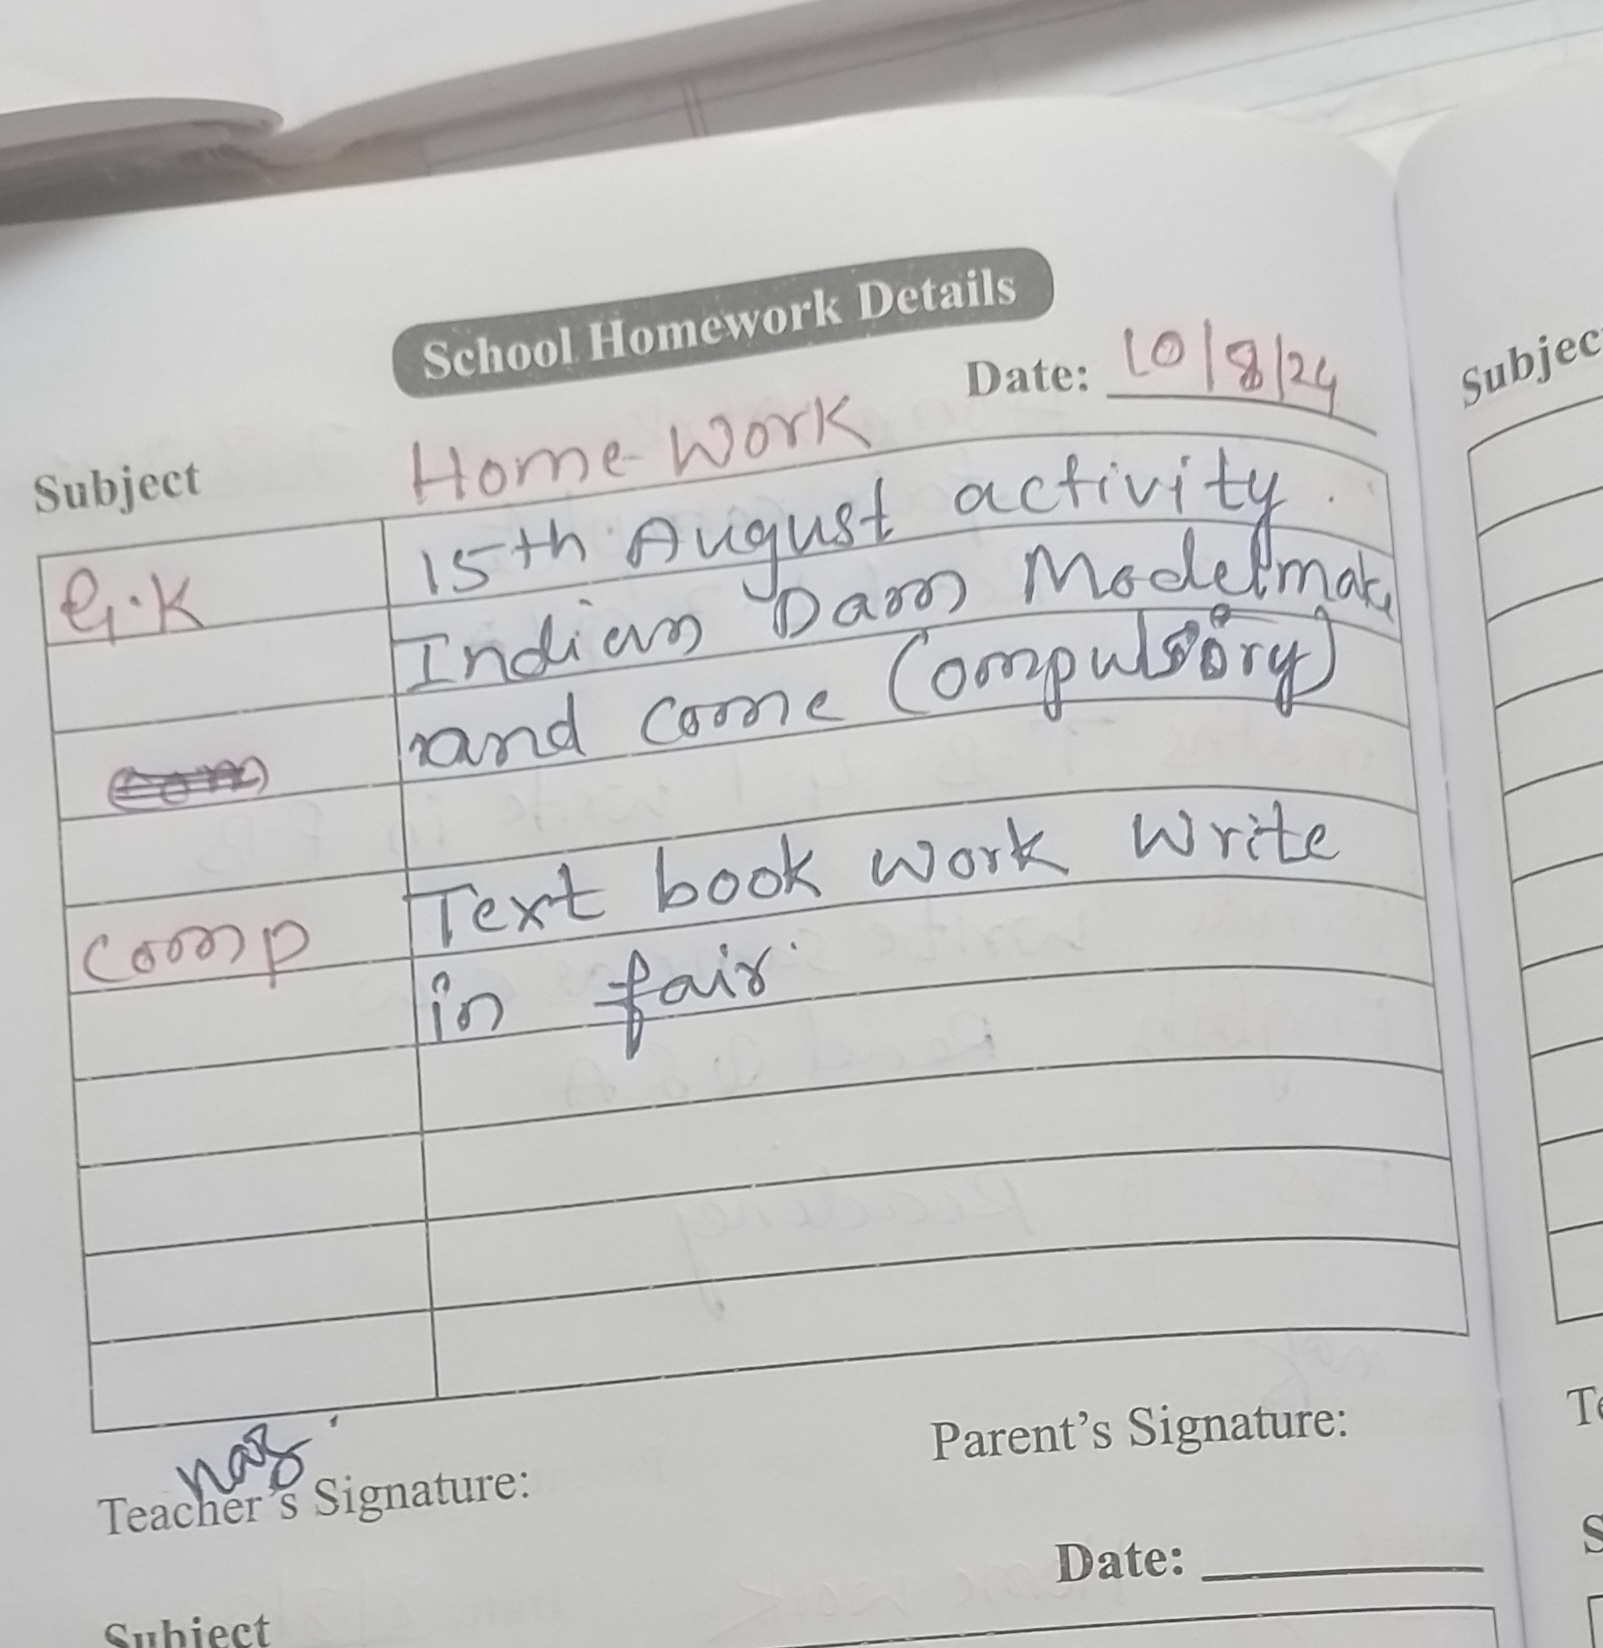 School Homework Details
Date: 10/8/24
Subject Home Work
G.K 15th August activity.
Indian Dam Model mak
and come Compulsory)
Text book work write
Comp in fair.
Teacher's Signature:
Parent's Signature:
Date:
Subject
Subjec